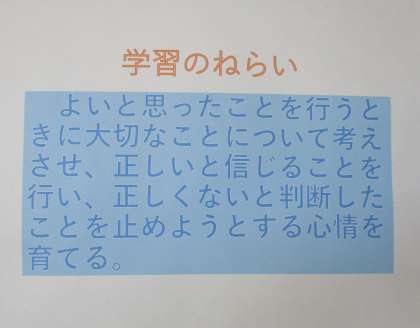 学習のねらい
よいと思ったことを行うと
きに大切なことについて考え
させ、正しいと信じることを
行い、正しくないと判断した
ことを止めようとする心情を
育てる。